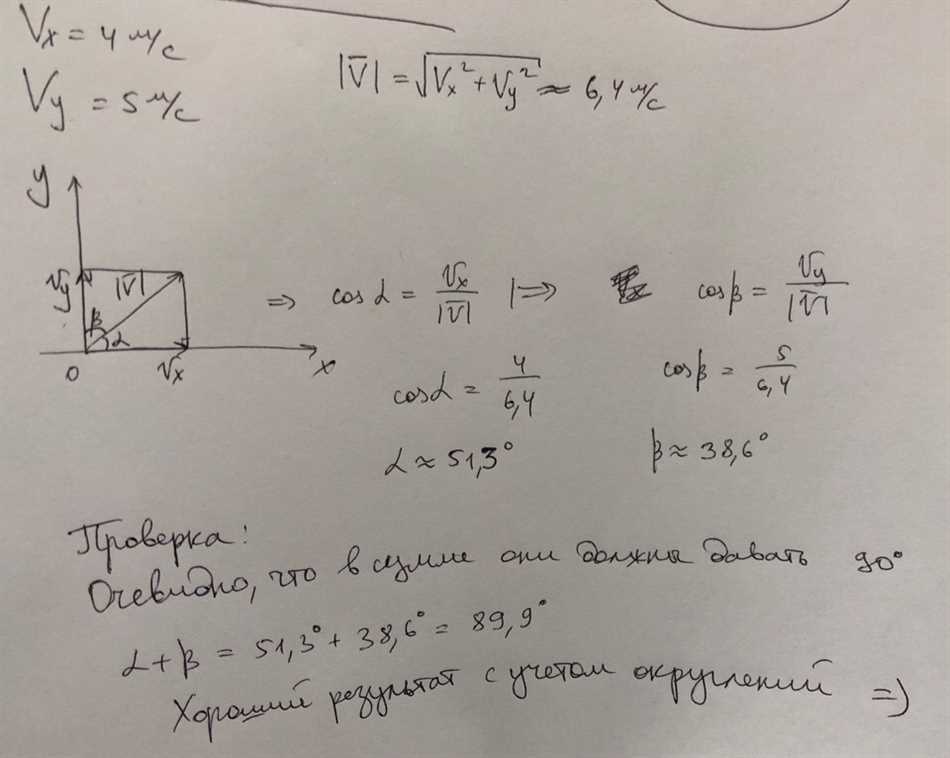 Vx = 4 м/с
Vy = 5 м/с
|V̅| = √(Vx² + Vy²) ≈ 6,4 м/с
y
Vy |V̅|
β
α
0 Vx x
=> cos α = Vx/|V̅| |=> cos β = Vy/|V̅|
cos α = 4/6,4 cos β = 5/6,4
α ≈ 51,3° β ≈ 38,6°
Проверка:
Очевидно, что в сумме они должны давать 90°
α + β = 51,3° + 38,6° = 89,9°
Хороший результат с учетом округлений =)